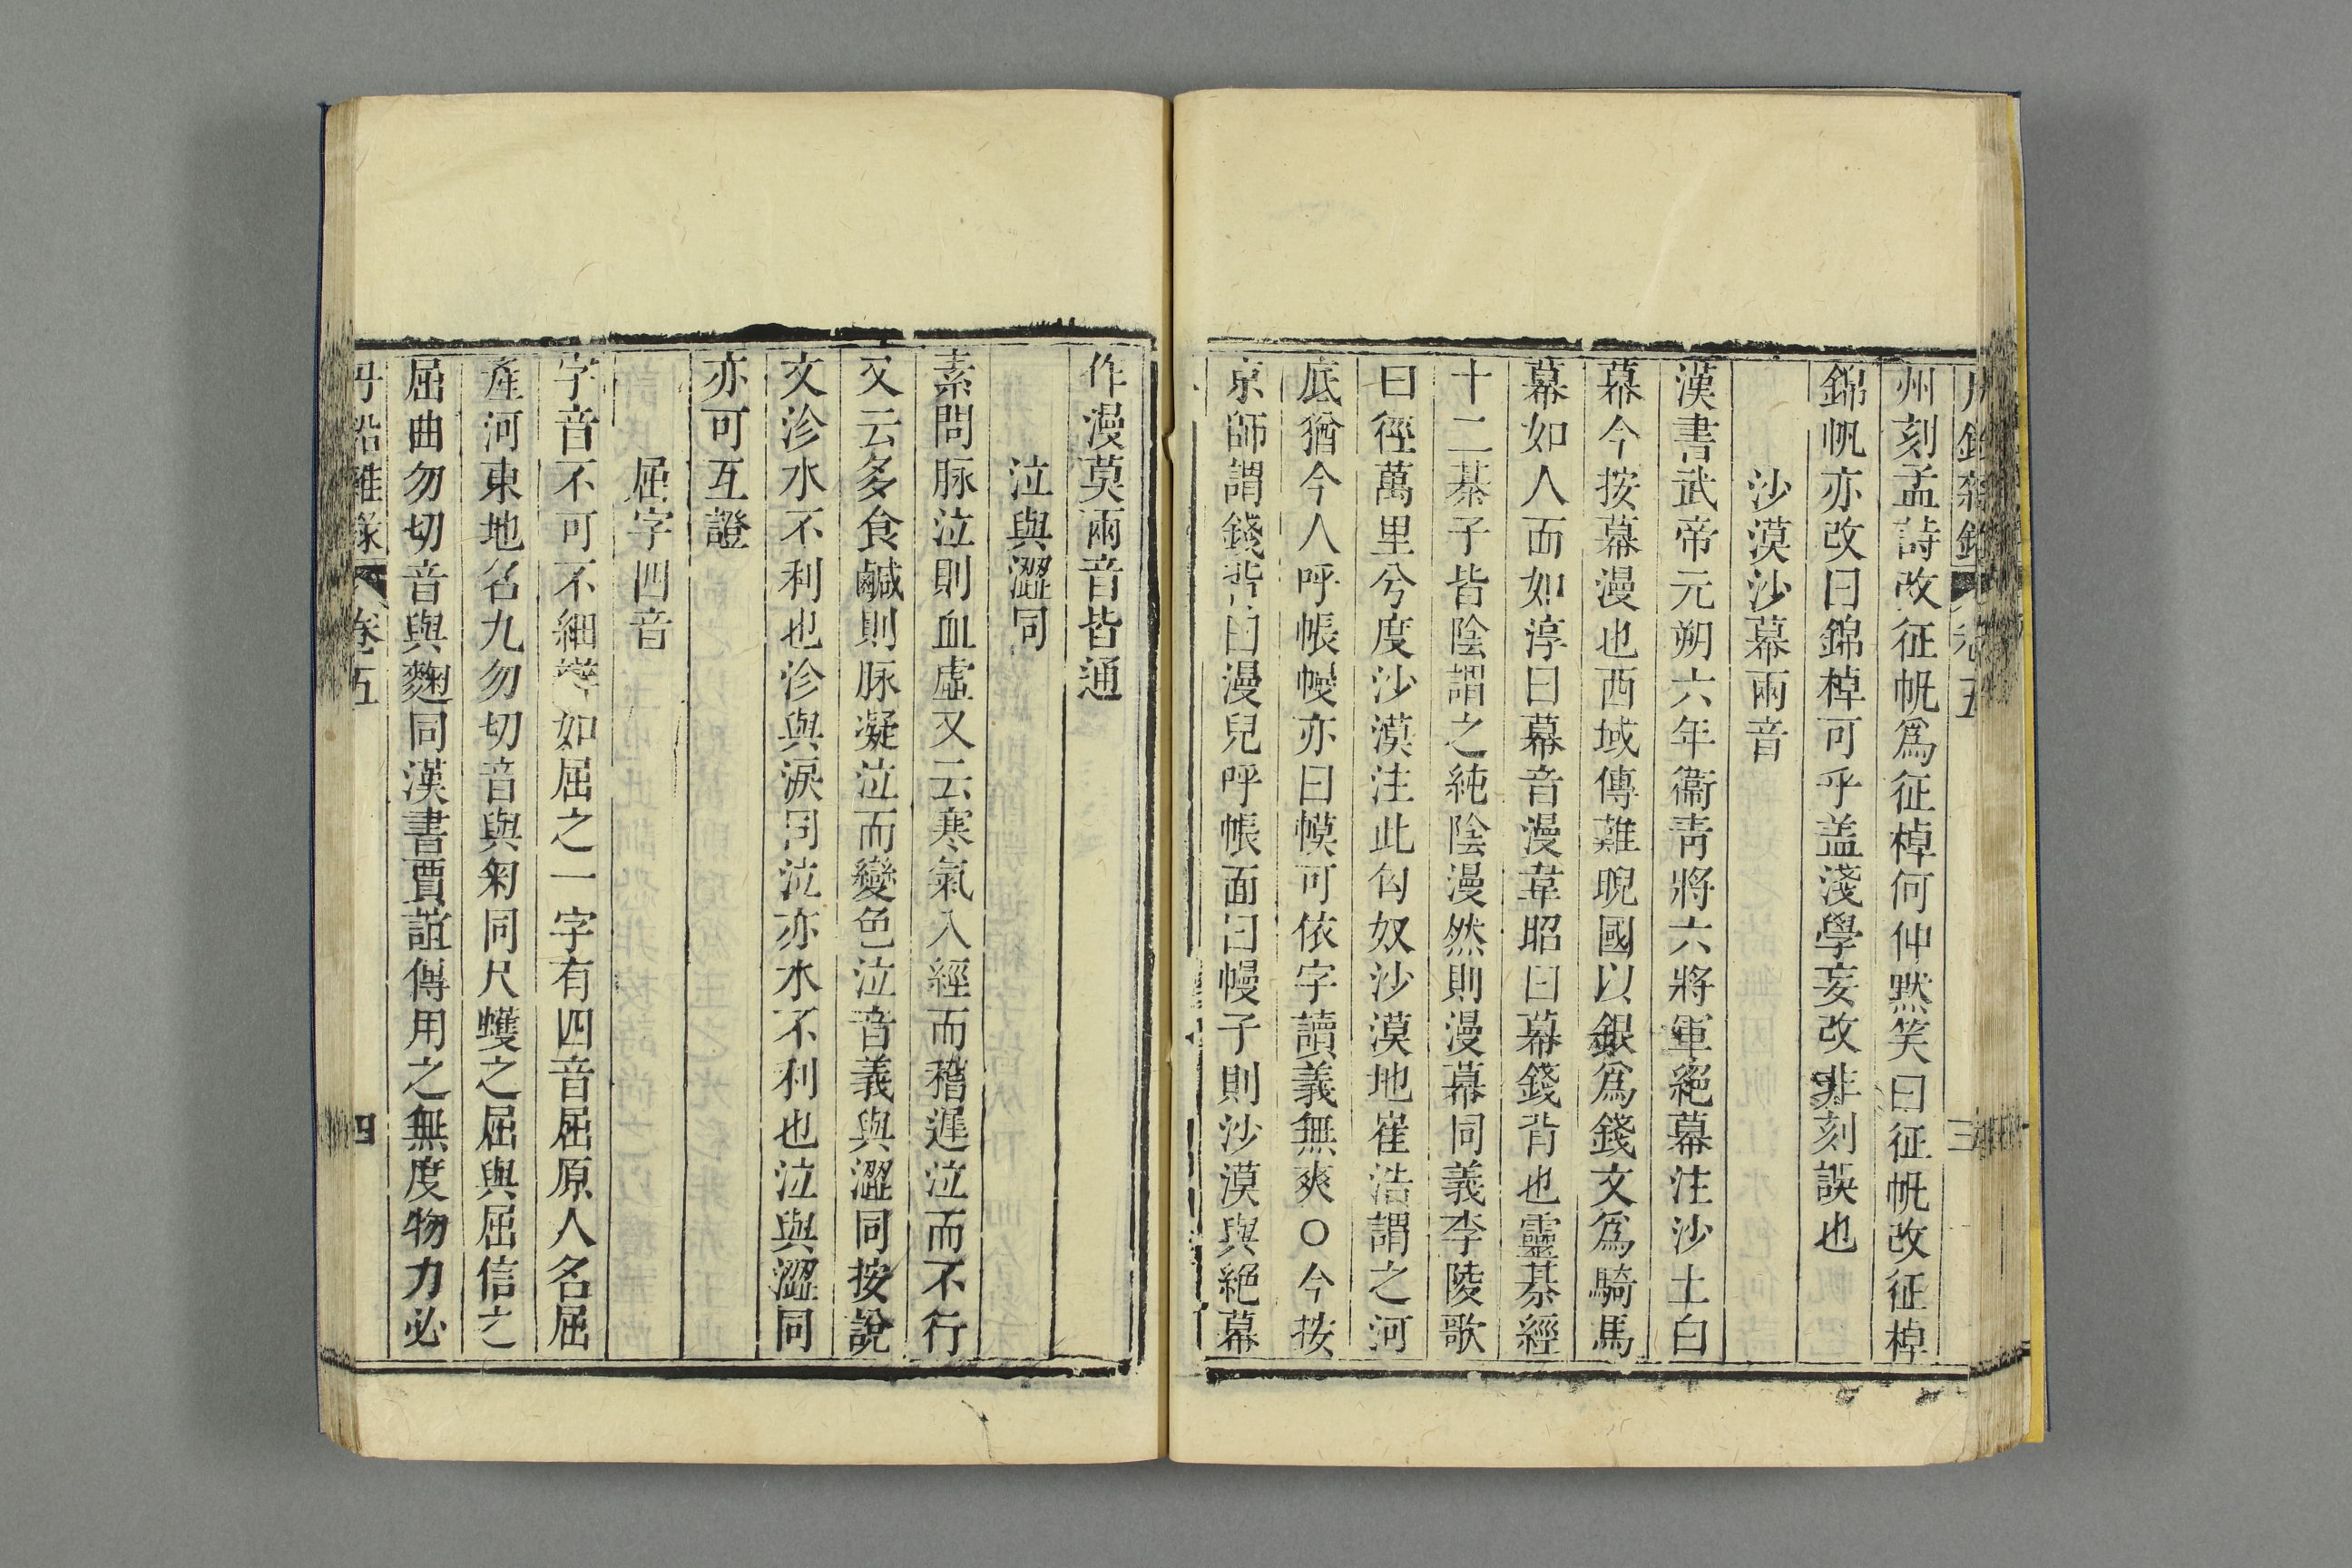 丹鉛雜錄 卷五 三
州刻孟詩改征帆爲征棹何仲默笑曰征帆改征棹
錦帆亦改曰錦棹可乎盖淺學妄改非刻誤也
沙漠沙幕兩音
漢書武帝元朔六年衞青將六將軍絕幕注沙土白
幕今按幕漫也西域傳難晲國以銀爲錢文爲騎馬
幕如人面如淳曰幕音漫韋昭曰幕錢背也靈棊經
十二棊子皆陰謂之純陰漫然則漫幕同義李陵歌
曰徑萬里兮度沙漠注此匈奴沙漠地崔浩謂之河
底猶今人呼帳幔亦曰幙可依字讀義無爽○今按
京師謂錢背曰漫兒呼帳面曰幔子則沙漠與絕幕
作漫莫兩音皆通
泣與澀同
素問脉泣則血虛又云寒氣入經而稽遲泣而不行
又云多食鹹則脉凝泣而變色泣音義與澀同按說
文沴水不利也沴與淚同泣亦水不利也泣與澀同
亦可互證
屈字四音
字音不可不細辯如屈之一字有四音屈原人名屈
產河東地名九勿切音與匊同尺蠖之屈與屈信之
屈曲勿切音與麴同漢書賈誼傳用之無度物力必
丹鉛雜錄 卷五 四